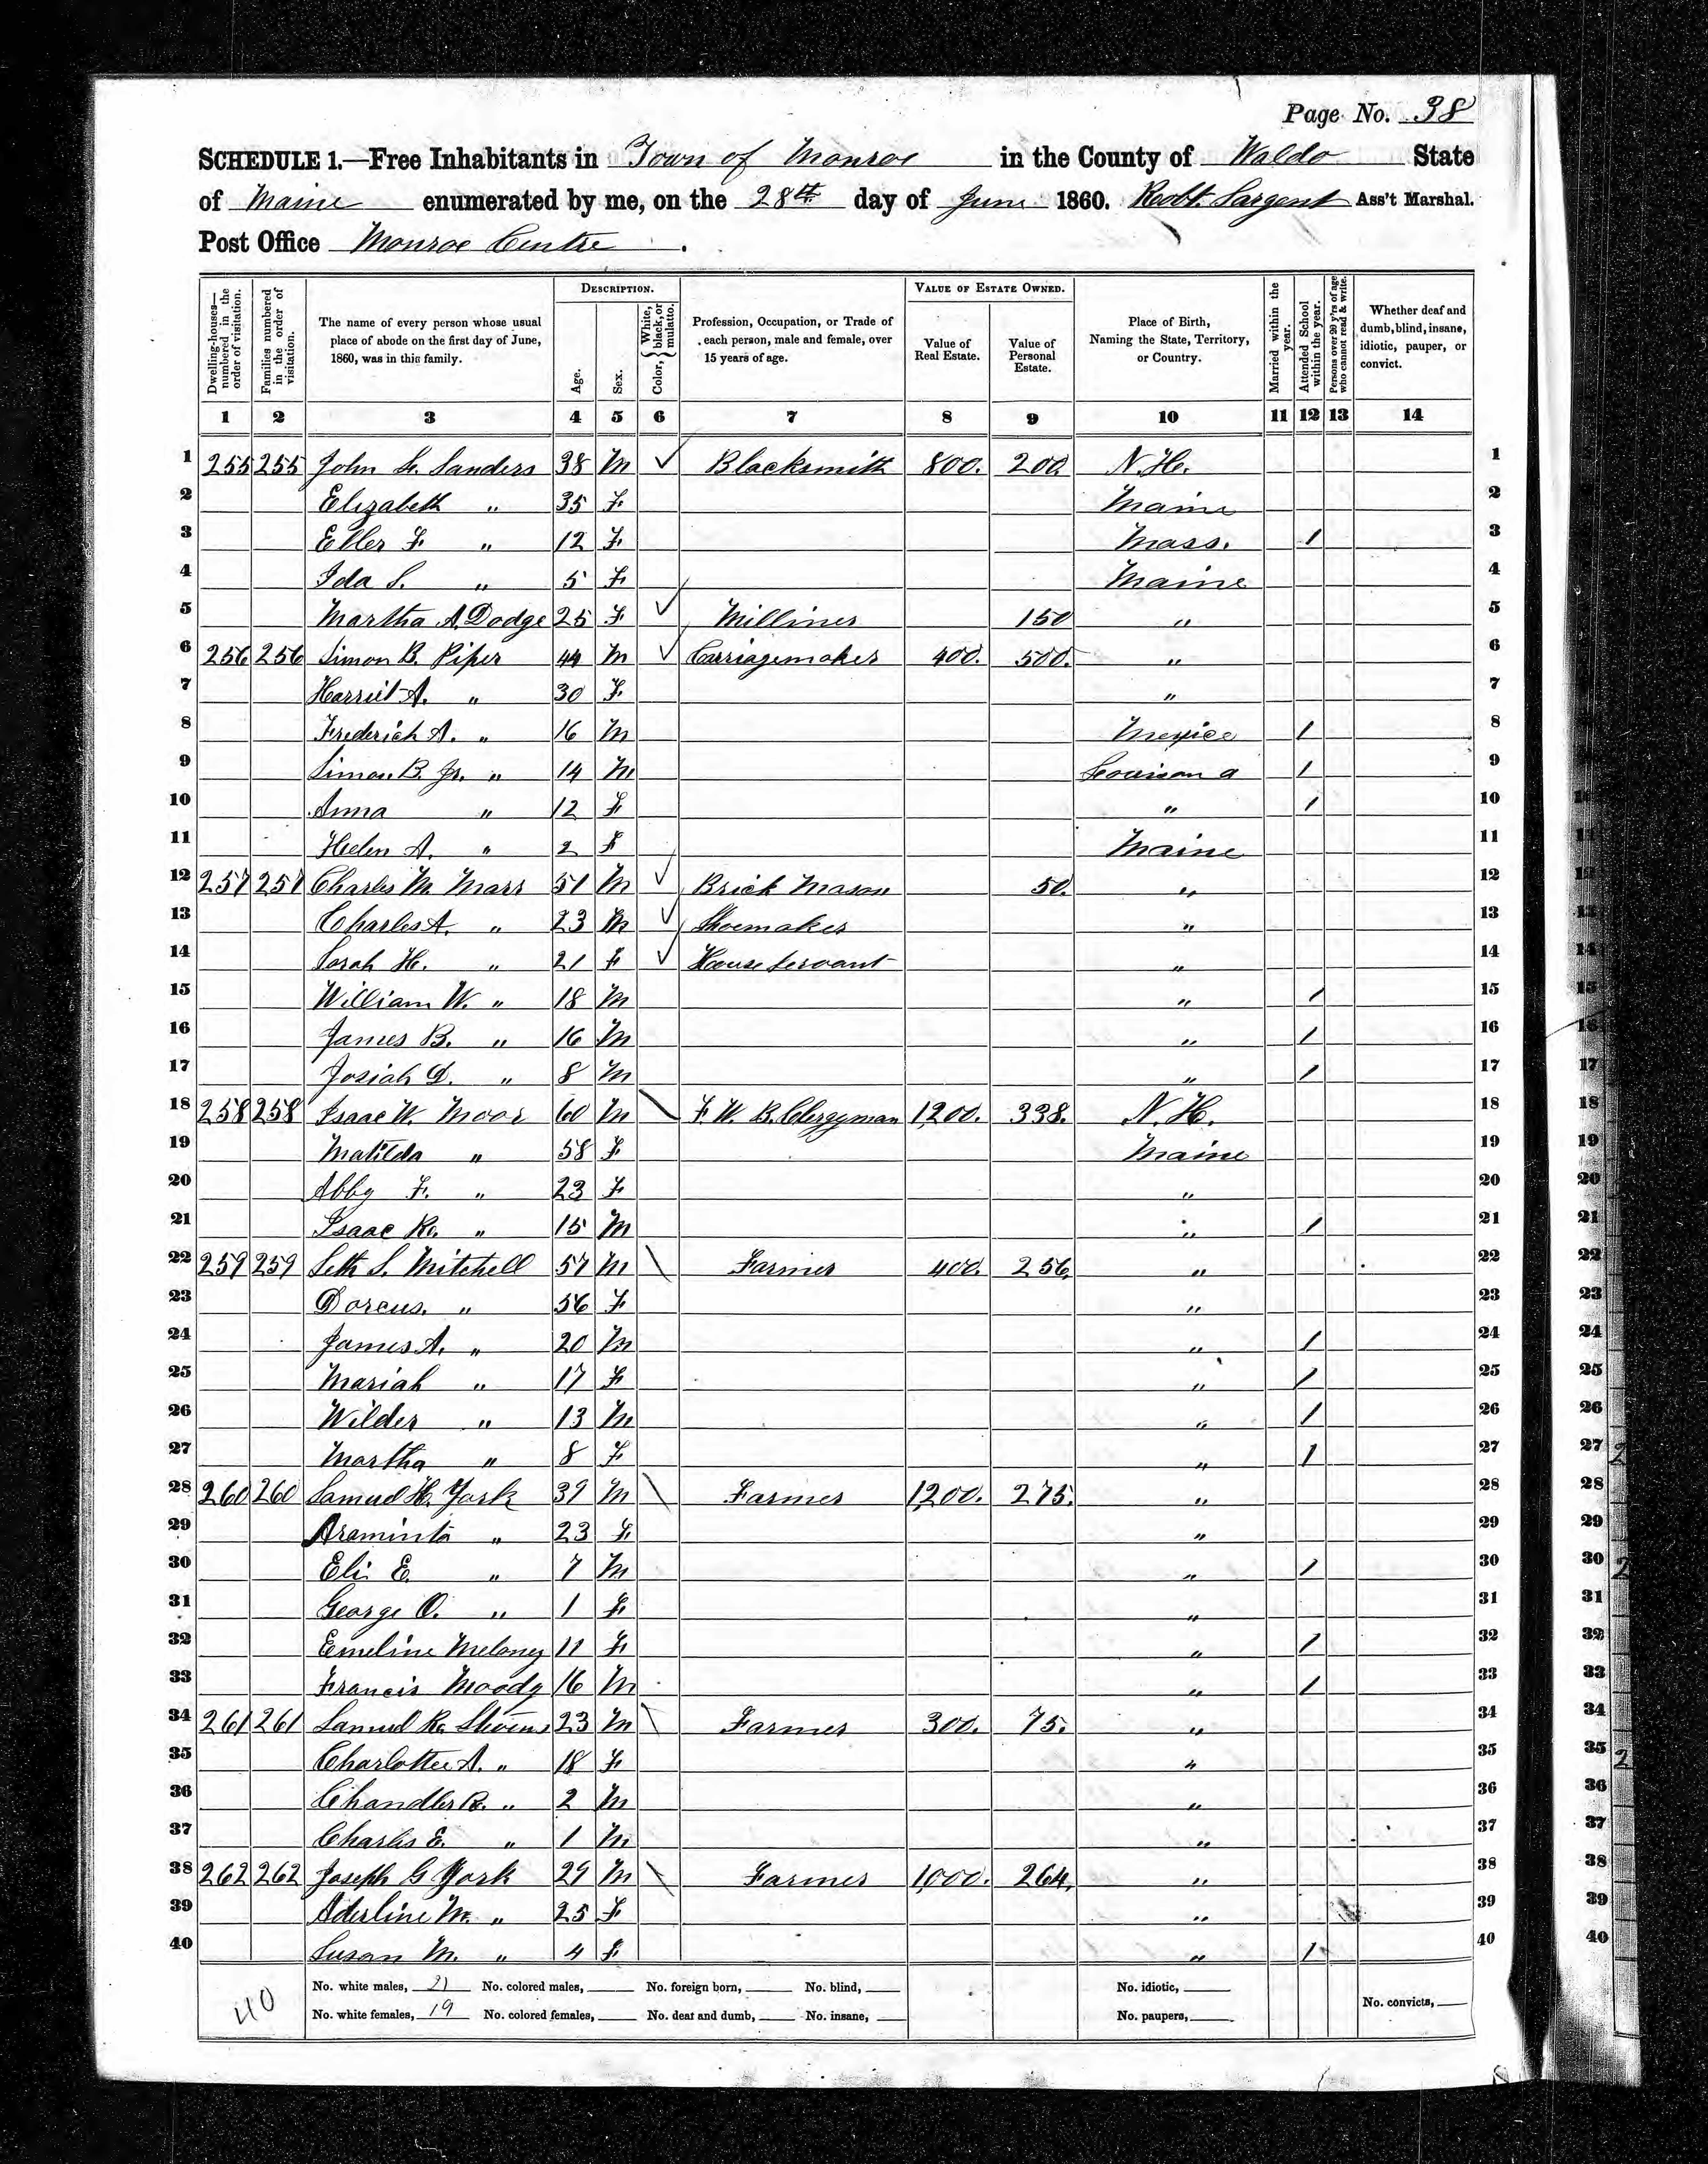 Page No. 38
SCHEDULE 1.—Free Inhabitants in Town of Monroe in the County of Waldo State
of Maine enumerated by me, on the 28th day of June 1860. Robt. Sargent Ass't Marshal.
Post Office Monroe Centre.
Dwelling-houses—numbered in the order of visitation. Families numbered in the order of visitation. The name of every person whose usual place of abode on the first day of June, 1860, was in this family. DESCRIPTION. Age. Sex. Color, {White, black, or mulatto. Profession, Occupation, or Trade of each person, male and female, over 15 years of age. VALUE OF ESTATE OWNED. Value of Real Estate. Value of Personal Estate. Place of Birth, Naming the State, Territory, or Country. Married within the year. Attended School within the year. Persons over 20 y'rs of age who cannot read & write. Whether deaf and dumb, blind, insane, idiotic, pauper, or convict.
1 2 3 4 5 6 7 8 9 10 11 12 13 14
1 255 255 John L. Sanders 38 M ✓ Blacksmith 800. 200. N.H. 1
2 Elizabeth " 35 F Maine 2
3 Eller F " 12 F Mass. / 3
4 Ida S. " 5 F Maine 4
5 Martha A. Dodge 25 F ✓ Milliner 150 " 5
6 256 256 Simon B. Piper 44 M ✓ Carriagemaker 400. 500. " 6
7 Harriet A. " 30 F " 7
8 Frederick A. " 16 M Mexico / 8
9 Simon B. Jr. " 14 M Louisiana / 9
10 Anna " 12 F " / 10
11 Helen A. " 2 F Maine 11
12 257 257 Charles M. Marr 51 M ✓ Brick Mason 50. " 12
13 Charles A. " 23 M ✓ Shoemaker " 13
14 Sarah H. " 21 F ✓ House Servant " 14
15 William W. " 18 M " / 15
16 James B. " 16 M " / 16
17 Josiah D. " 8 M " / 17
18 258 258 Isaac W. Moor 60 M \ F. W. B. Clergyman 1,200. 338. N.H. 18
19 Matilda " 58 F Maine 19
20 Abby F. " 23 F " 20
21 Isaac R. " 15 M " / 21
22 259 259 Seth S. Mitchell 57 M \ Farmer 400. 256. " 22
23 Dorcus. " 56 F " 23
24 James A. " 20 M " / 24
25 Mariah " 17 F " / 25
26 Wilder " 13 M " / 26
27 Martha " 8 F " / 27
28 260 260 Samuel H. York 39 M \ Farmer 1,200. 275. " 28
29 Araminta " 23 F " 29
30 Eli E. " 7 M " / 30
31 George O. " 1 F " 31
32 Emeline Melaney 11 F " / 32
33 Francis Moody 16 M " / 33
34 261 261 Samuel R. Stevens 23 M \ Farmer 300. 75. " 34
35 Charlottee A. " 18 F " 35
36 Chandler R. " 2 M " 36
37 Charles E. " 1 M " 37
38 262 262 Joseph G York 29 M \ Farmer 1,000. 264. " 38
39 Aderline M. " 25 F " 39
40 Susan M. " 4 F " / 40
40
No. white males, 21 No. colored males, No. foreign born, No. blind, No. idiotic,
No. white females, 19 No. colored females, No. deaf and dumb, No. insane, No. paupers, No. convicts,